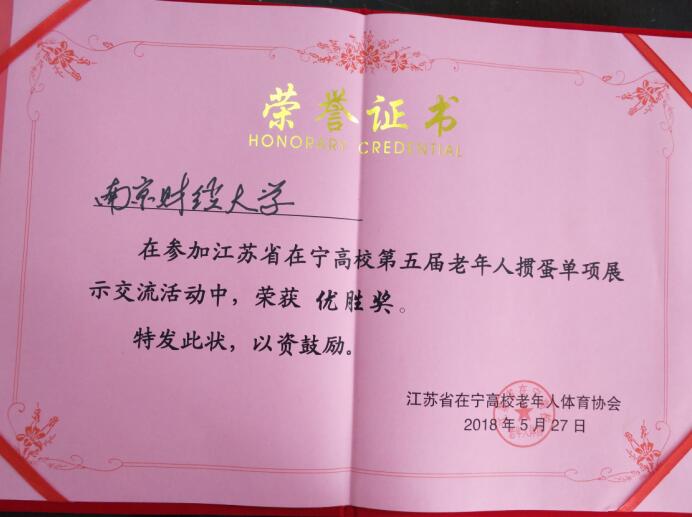 荣誉证书
HONORARY CREDENTIAL
南京财经大学
在参加江苏省在宁高校第五届老年人掼蛋单项展
示交流活动中，荣获 优胜奖。
特发此状，以资鼓励。
江苏省在宁高校老年人体育协会
2018年5月27日